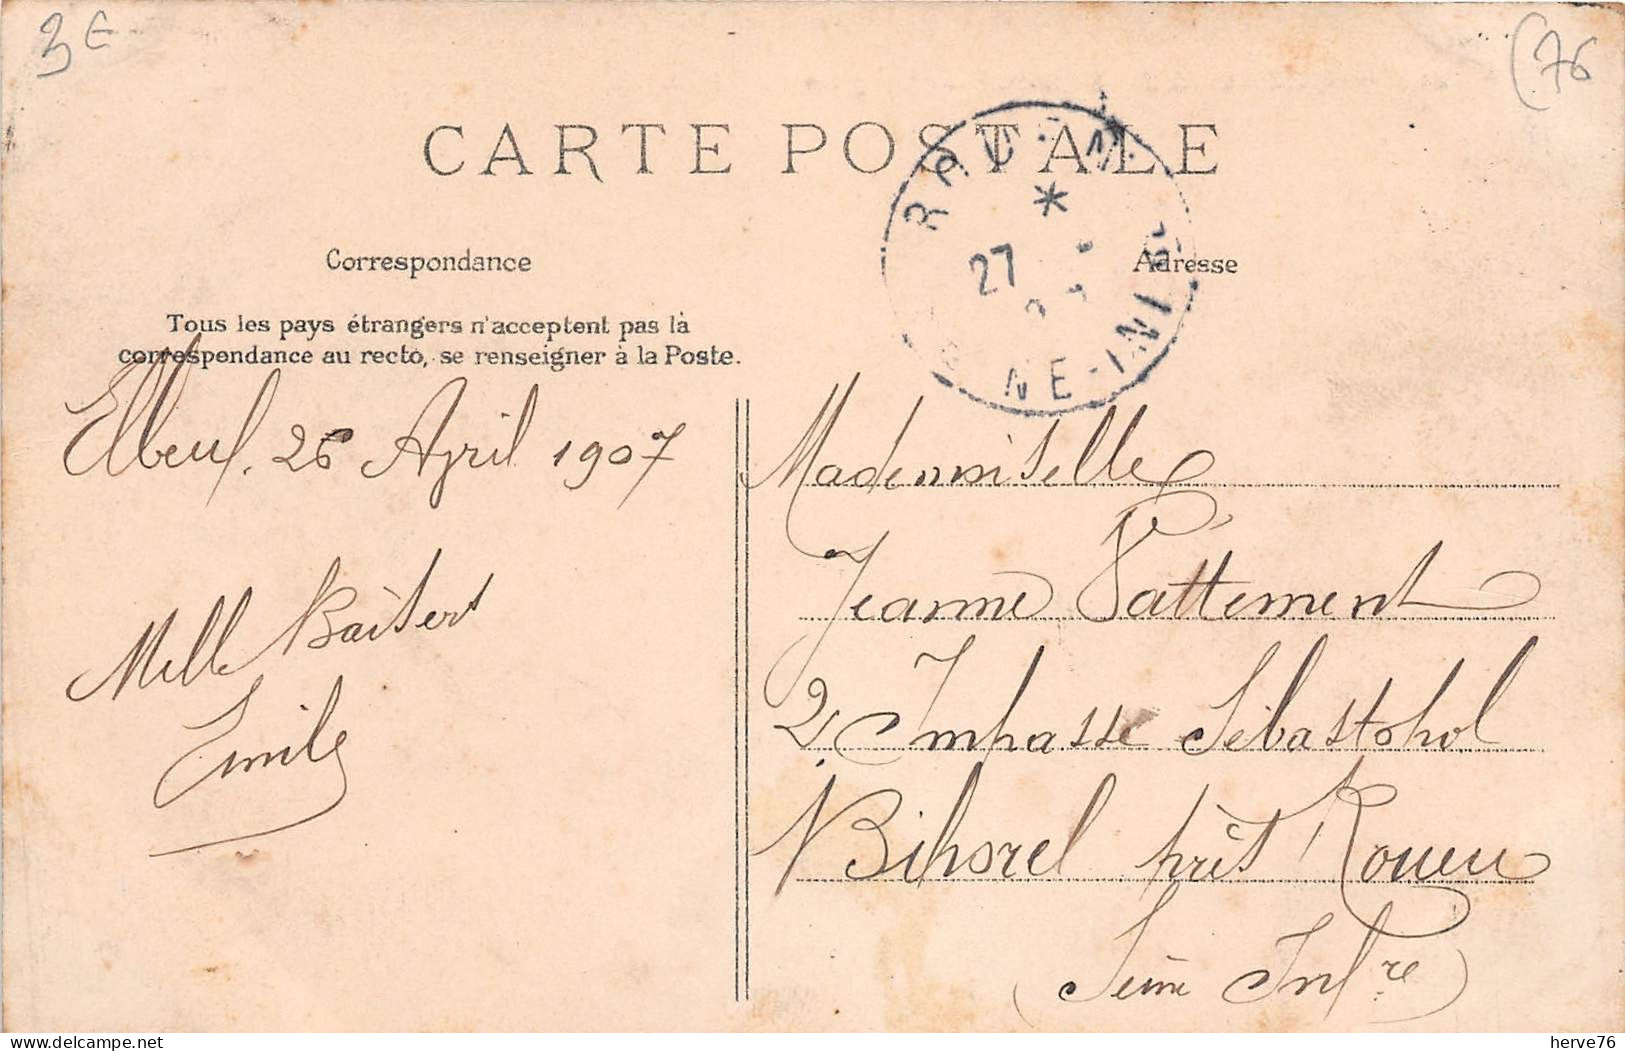 3€
(76
CARTE POSTALE
Correspondance
Adresse
Tous les pays étrangers n'acceptent pas la
correspondance au recto, se renseigner à la Poste.
ROUEN
27
NE-INFRE
Elbeuf. 26 Avril 1907
Mille Baisers
Emile
Mademoiselle
Jeanne Pattement
2 Impasse Sébastopol
Bihorel près Rouen
(Seine Infre)
delcampe.net
herve76